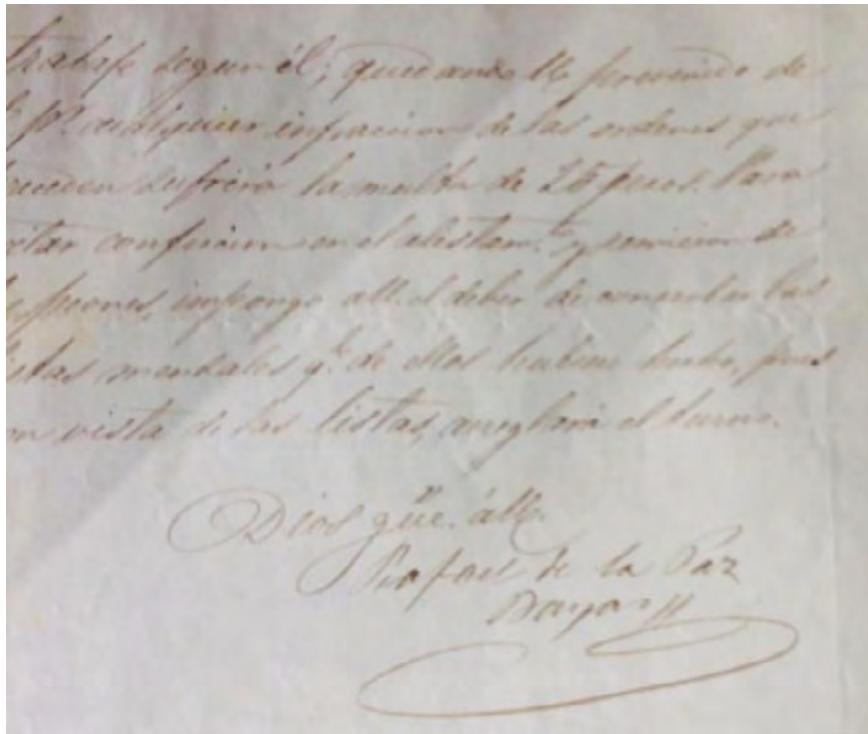 trabajo segun él; quedando U. prevenido de
q.e p.r cualquier infraccion de las ordenes que
preceden sufrirá la multa de 25 pesos. Para
evitar confusion en el alistam.to y servicio de
peones, impongo a U. el deber de conservar las
listas mensales q.e de ellos hubiere hecho, pues
en vista de las listas, arreglará el turno.
Dios gûe. á U.
Rafael de la Paz